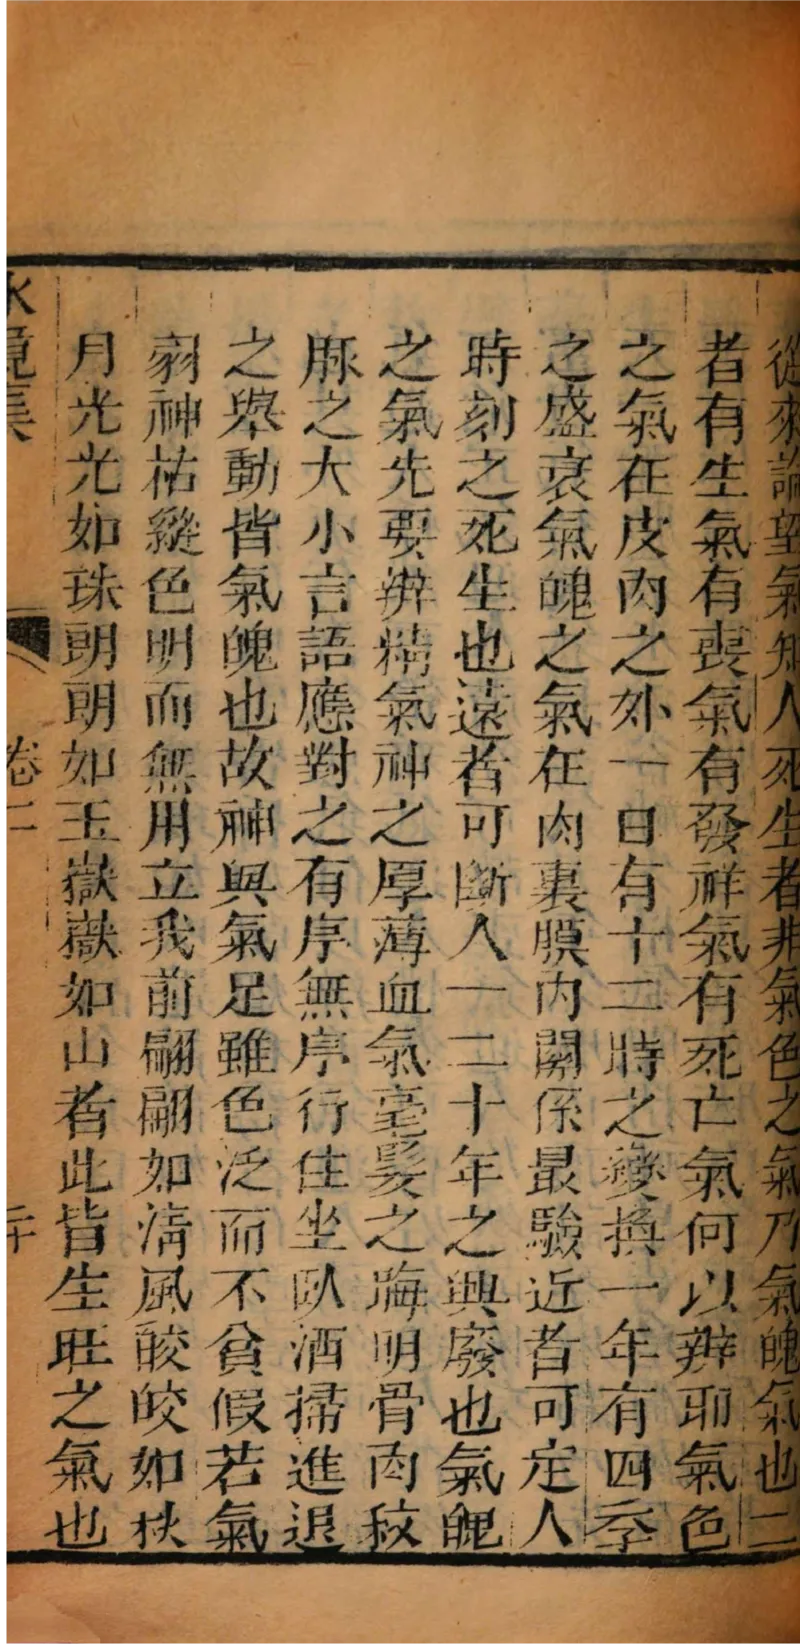 從來論望氣知人死生者非氣色之氣乃氣魄氣也二
者有生氣有喪氣有發祥氣有死亡氣何以辨耶氣色
之氣在皮肉之外一日有十二時之變換一年有四季
之盛衰氣魄之氣在肉裏膜內關係最驗近者可定人
時刻之死生也遠者可斷人一二十年之興廢也氣魄
之氣先要辨精氣神之厚薄血氣毫髮之晦明骨肉紋
脉之大小言語應對之有序無序行住坐臥洒掃進退
之舉動皆氣魄也故神與氣足雖色泛而不貧假若氣
弱神枯縱色明而無用立我前翩翩如淸風皎皎如秋
月光光如珠朗朗如玉嶽嶽如山者此皆生旺之氣也
水鏡集 卷二 二十